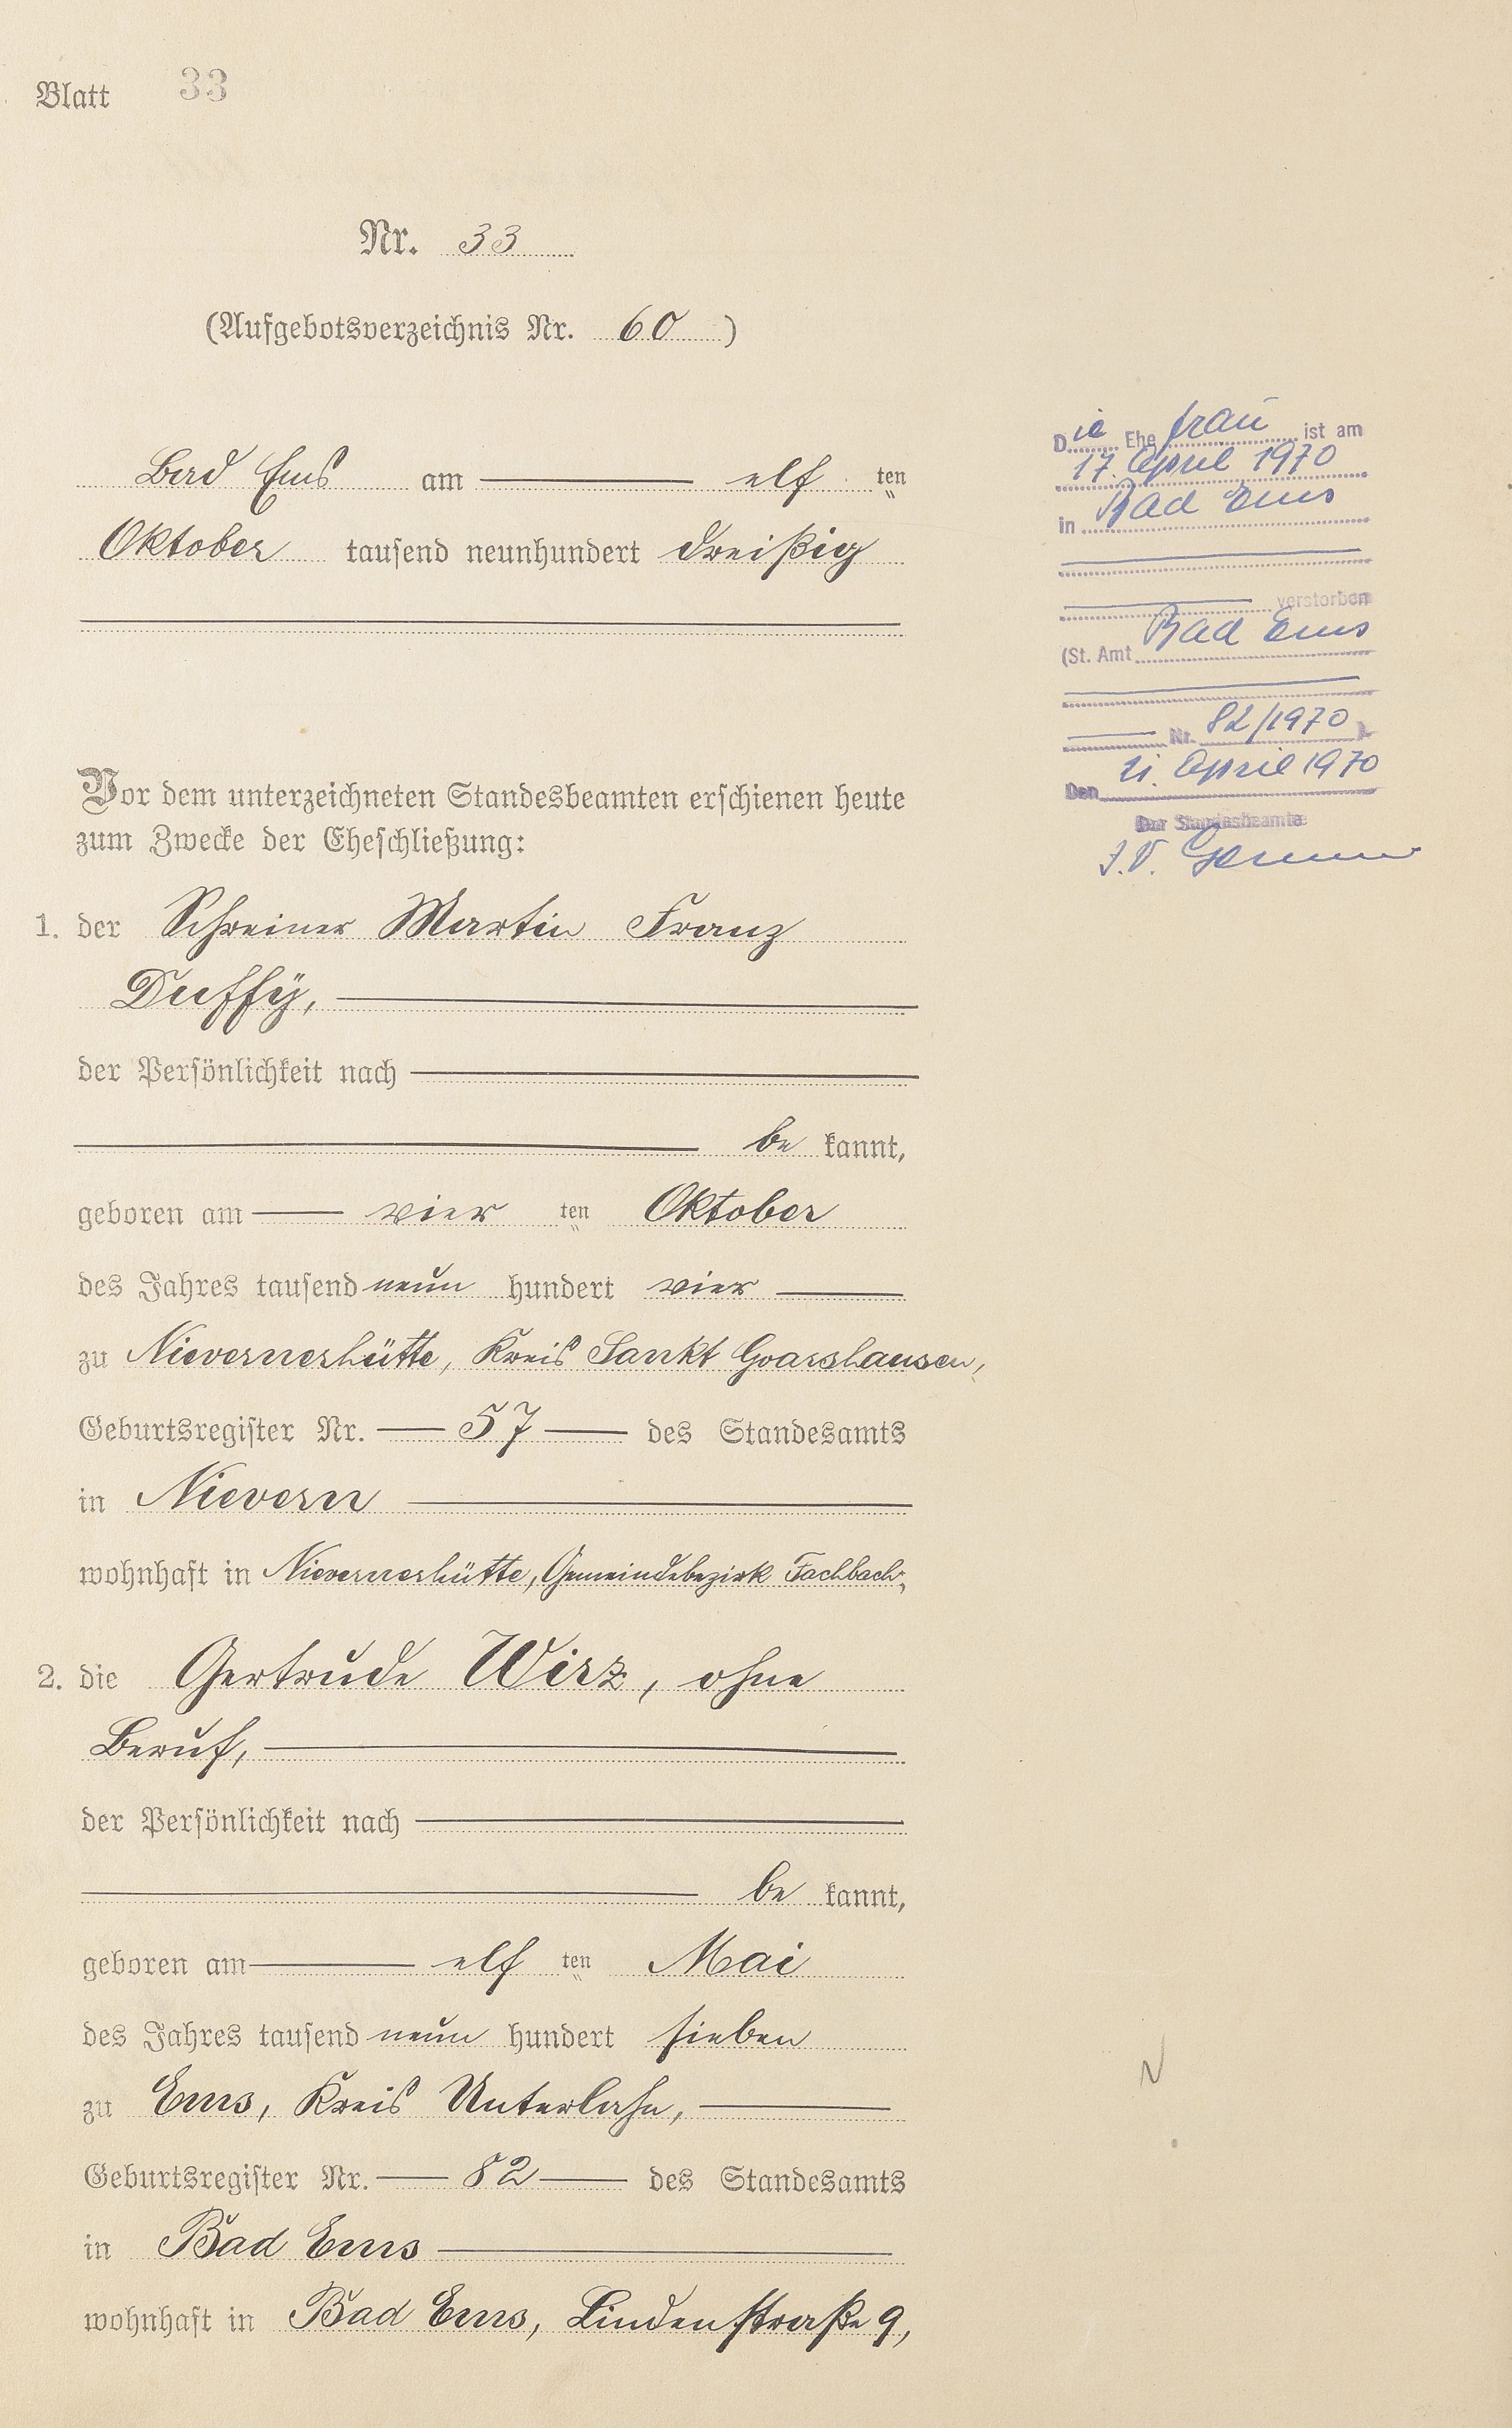 Blatt 33
Nr. 33
(Aufgebotsverzeichnis Nr. 60)
Bad Ems am elf ten
Oktober tausend neunhundert dreißig
Vor dem unterzeichneten Standesbeamten erschienen heute
zum Zwecke der Eheschließung:
1. der Schreiner Martin Franz
Duffÿ,
der Persönlichkeit nach
be kannt,
geboren am vier ten Oktober
des Jahres tausend neun hundert vier
zu Nievernerhütte, Kreis Sankt Goarshausen,
Geburtsregister Nr. 57 des Standesamts
in Nievern
wohnhaft in Nievernerhütte, Gemeindebezirk Fachbach,
2. die Gertrude Wirz, ohne
Beruf,
der Persönlichkeit nach
be kannt,
geboren am elf ten Mai
des Jahres tausend neun hundert sieben
zu Ems, Kreis Unterlahn,
Geburtsregister Nr. 82 des Standesamts
in Bad Ems
wohnhaft in Bad Ems, Lindenstraße 9,
Die Ehefrau ist am
17. April 1970
in Bad Ems
verstorben
(St. Amt Bad Ems
Nr. 82/1970)
Den 21. April 1970
Der Standesbeamte
J.V.
N